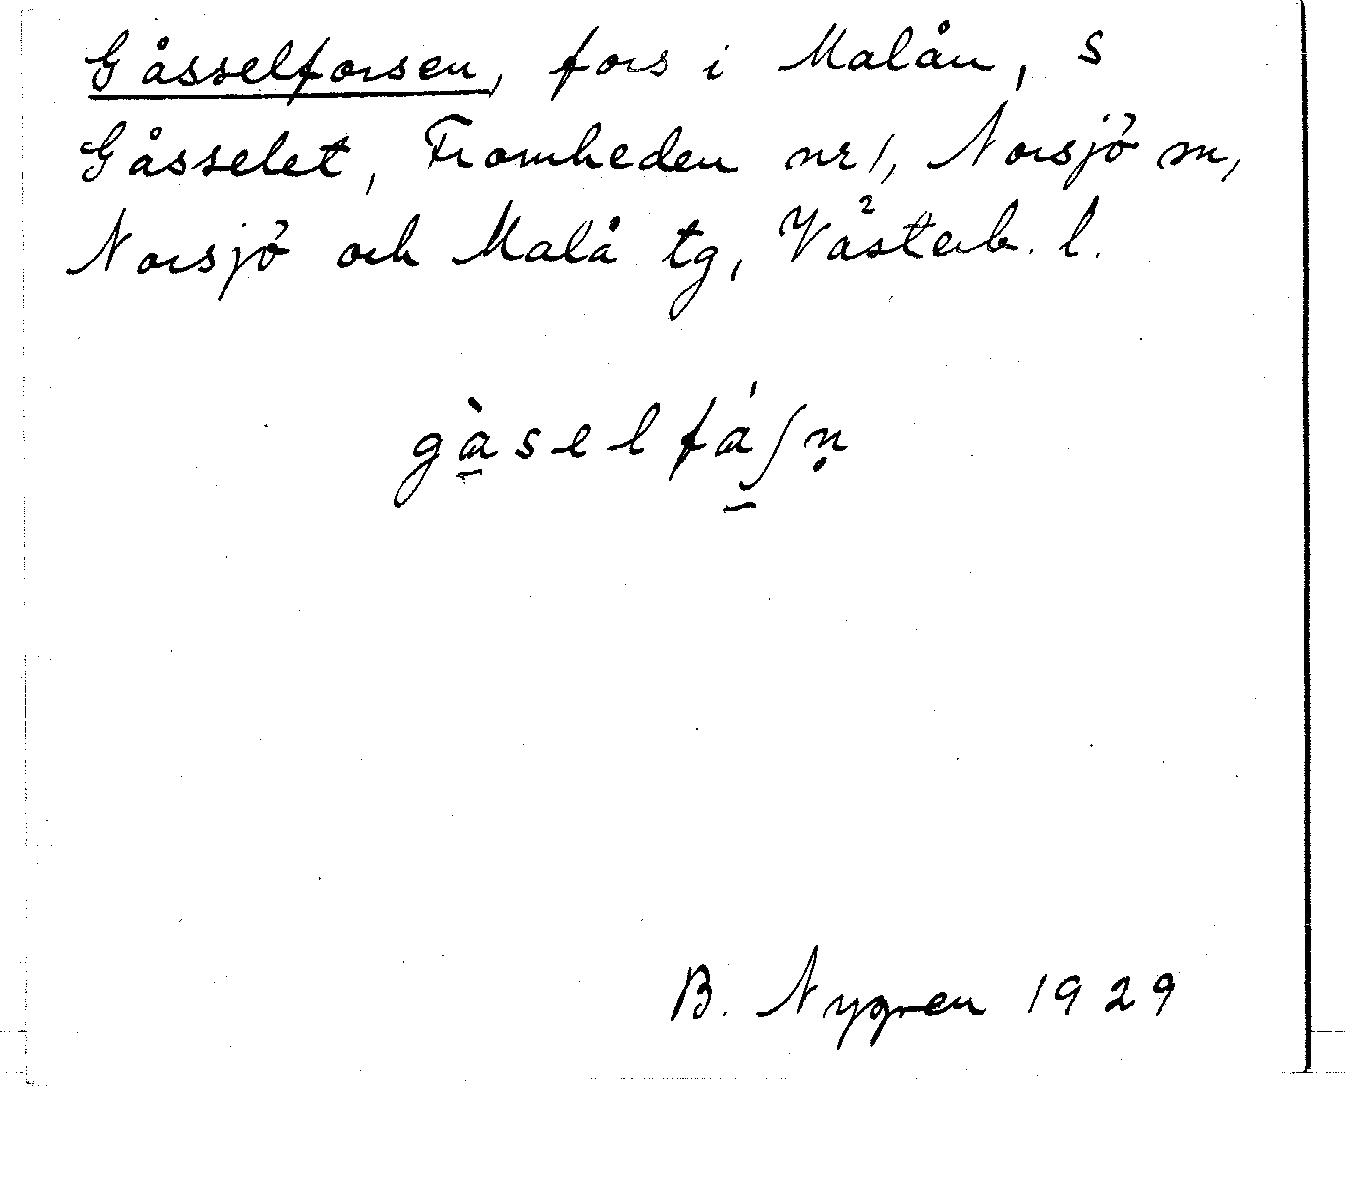 Gåsselforsen, fors i Malån, S
Gåsselet, Fromheden nr 1, Norsjö sn,
Norsjö och Malå tg, Västerb. l.
gà̱selfá̱ʃṇ
B. Nygren 1929